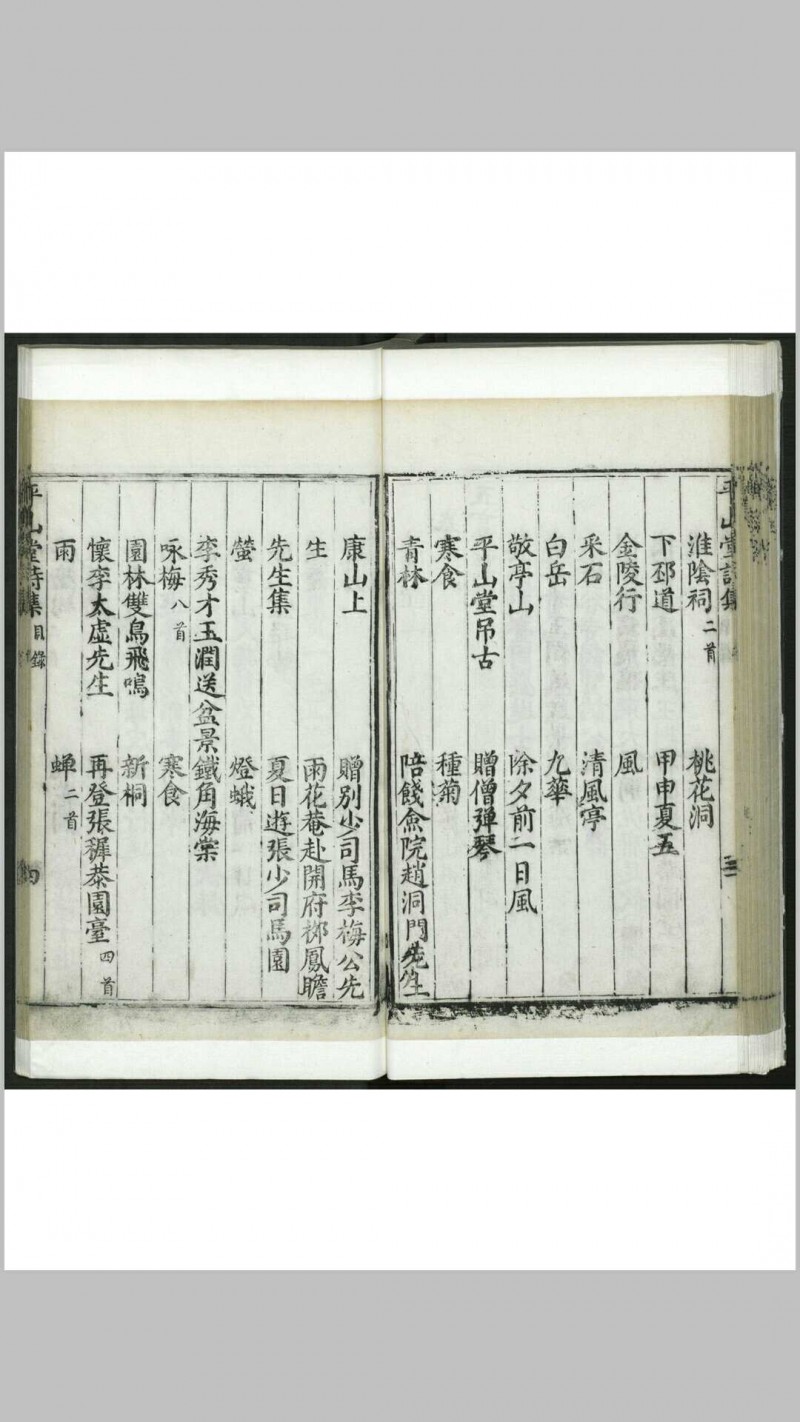 平山堂詩集 三
淮陰祠二首 桃花洞
下邳道 甲申夏五
金陵行 風
采石 清風亭
白岳 九華
敬亭山 除夕前一日風
平山堂吊古 贈僧彈琴
寒食 種菊
青林 陪餞僉院趙洞門先生
康山上 贈別少司馬李梅公先
生 雨花菴赴開府鄧鳳瞻
先生集 夏日遊張少司馬園
螢 燈蛾
李秀才玉潤送盆景鐵角海棠
咏梅八首 寒食
園林雙鳥飛鳴 新桐
懷李太虛先生 再登張穉恭園臺四首
雨 蟬二首
平山堂詩集 目錄 四